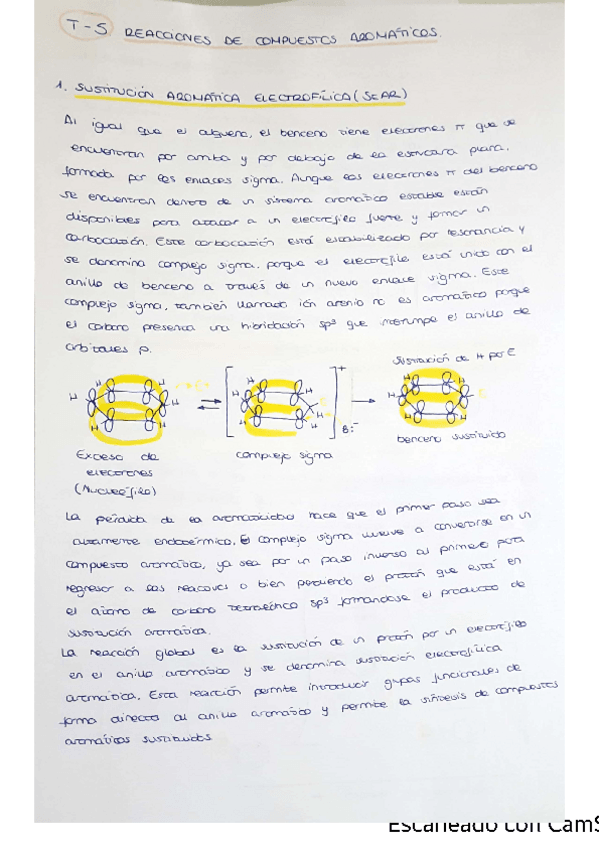 T-5 REACCIONES DE COMPUESTOS AROMÁTICOS.
1. SUSTITUCIÓN AROMÁTICA ELECTROFÍLICA (SEAR)
Al igual que el alqueno, el benceno tiene electrones π que se
encuentran por arriba y por debajo de la estructura plana,
formada por los enlaces sigma. Aunque los electrones π del benceno
se encuentran dentro de un sistema aromático estable están
disponibles para atacar a un electrófilo fuerte y formar un
carbocatión. Este carbocatión está estabilizado por resonancia y
se denomina complejo sigma, porque el electrófilo está unido con el
anillo de benceno a través de un nuevo enlace sigma. Este
complejo sigma, también llamado ión arenio no es aromático porque
el carbono presenta una hibridación sp³ que interrumpe el anillo de
orbitales p.
Sustitución de H por E
B:⁻
benceno sustituido
Exceso de
electrones
(Nucleófilo)
complejo sigma
La pérdida de la aromaticidad hace que el primer paso sea
altamente endotérmico. El complejo sigma vuelve a convertirse en un
compuesto aromático, ya sea por un paso inverso al primero para
regresar a los reactivos o bien perdiendo el protón que está en
el átomo de carbono tetraédrico sp³ formándose el producto de
sustitución aromática.
La reacción global es la sustitución de un protón por un electrófilo
en el anillo aromático y se denomina sustitución electrofílica
aromática. Esta reacción permite introducir grupos funcionales de
forma directa al anillo aromático y permite la síntesis de compuestos
aromáticos sustituidos.
Escaneado con CamS